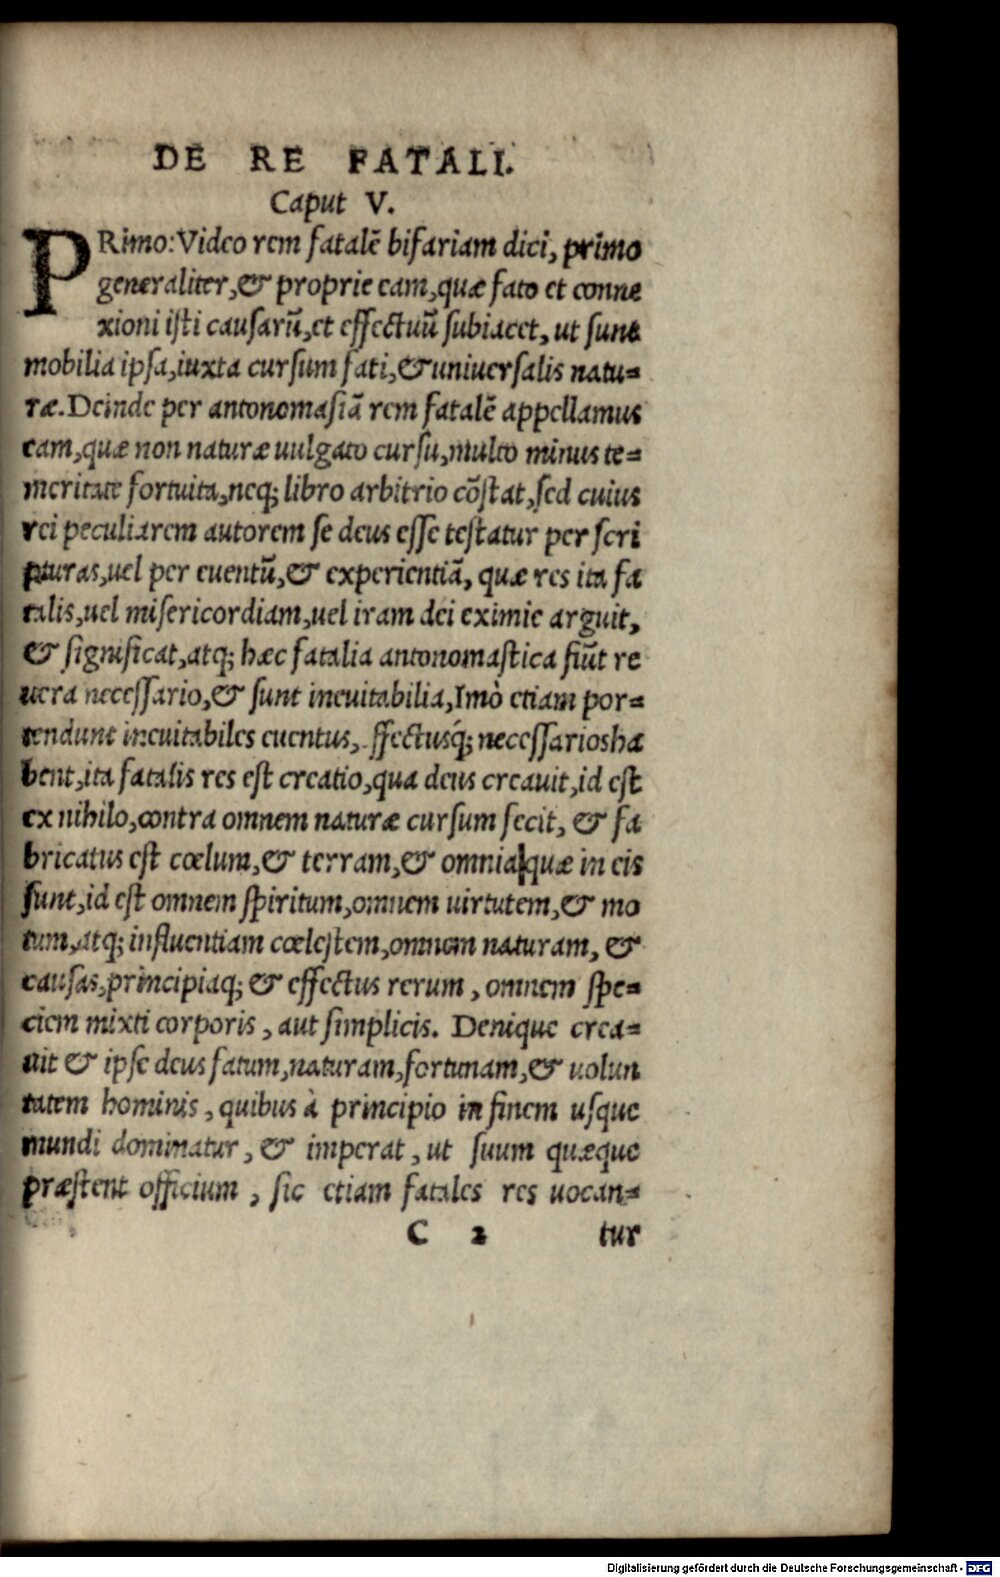 DE RE FATALI.
Caput V.
PRimo: Video rem fatalẽ bifariam dici, primo
generaliter, & proprie eam, quæ fato et conne
xioni isti causarũ, et effectuũ subiacet, ut sunt
mobilia ipsa, iuxta cursum fati, & uniuersalis natu-
ræ. Deinde per antonomasiã rem fatalẽ appellamus
eam, quæ non naturæ uulgato cursu, multo minus te-
meritate fortuita, neq; libro arbitrio cõstat, sed cuius
rei peculiarem autorem se deus esse testatur per scri
pturas, uel per euentũ, & experientiã, quæ res ita fa
talis, uel misericordiam, uel iram dei eximie arguit,
& significat, atq; hæc fatalia antonomastica fiũt re
uera necessario, & sunt ineuitabilia, Imò etiam por-
tendunt ineuitabiles euentus, ffectusq́; necessariosha
bent, ita fatalis res est creatio, qua deus creauit, id est
ex nihilo, contra omnem naturæ cursum fecit, & fa
bricatus est cœlum, & terram, & omnia quæ in eis
sunt, id est omnem spiritum, omnem uirtutem, & mo
tum, atq; influentiam cœlestem, omnem naturam, &
causas, principiaq; & effectus rerum, omnem spe-
ciem mixti corporis, aut simplicis. Denique crea-
uit & ipse deus fatum, naturam, fortunam, & uolun
tatem hominis, quibus à principio in finem usque
mundi dominatur, & imperat, ut suum quæque
præstent officium, sic etiam fatales res uocan-
C 2 tur
Digitalisierung gefördert durch die Deutsche Forschungsgemeinschaft - DFG